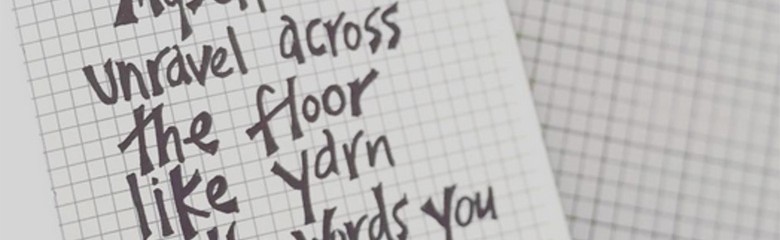 Myself
unravel across
the floor
like yarn
words you